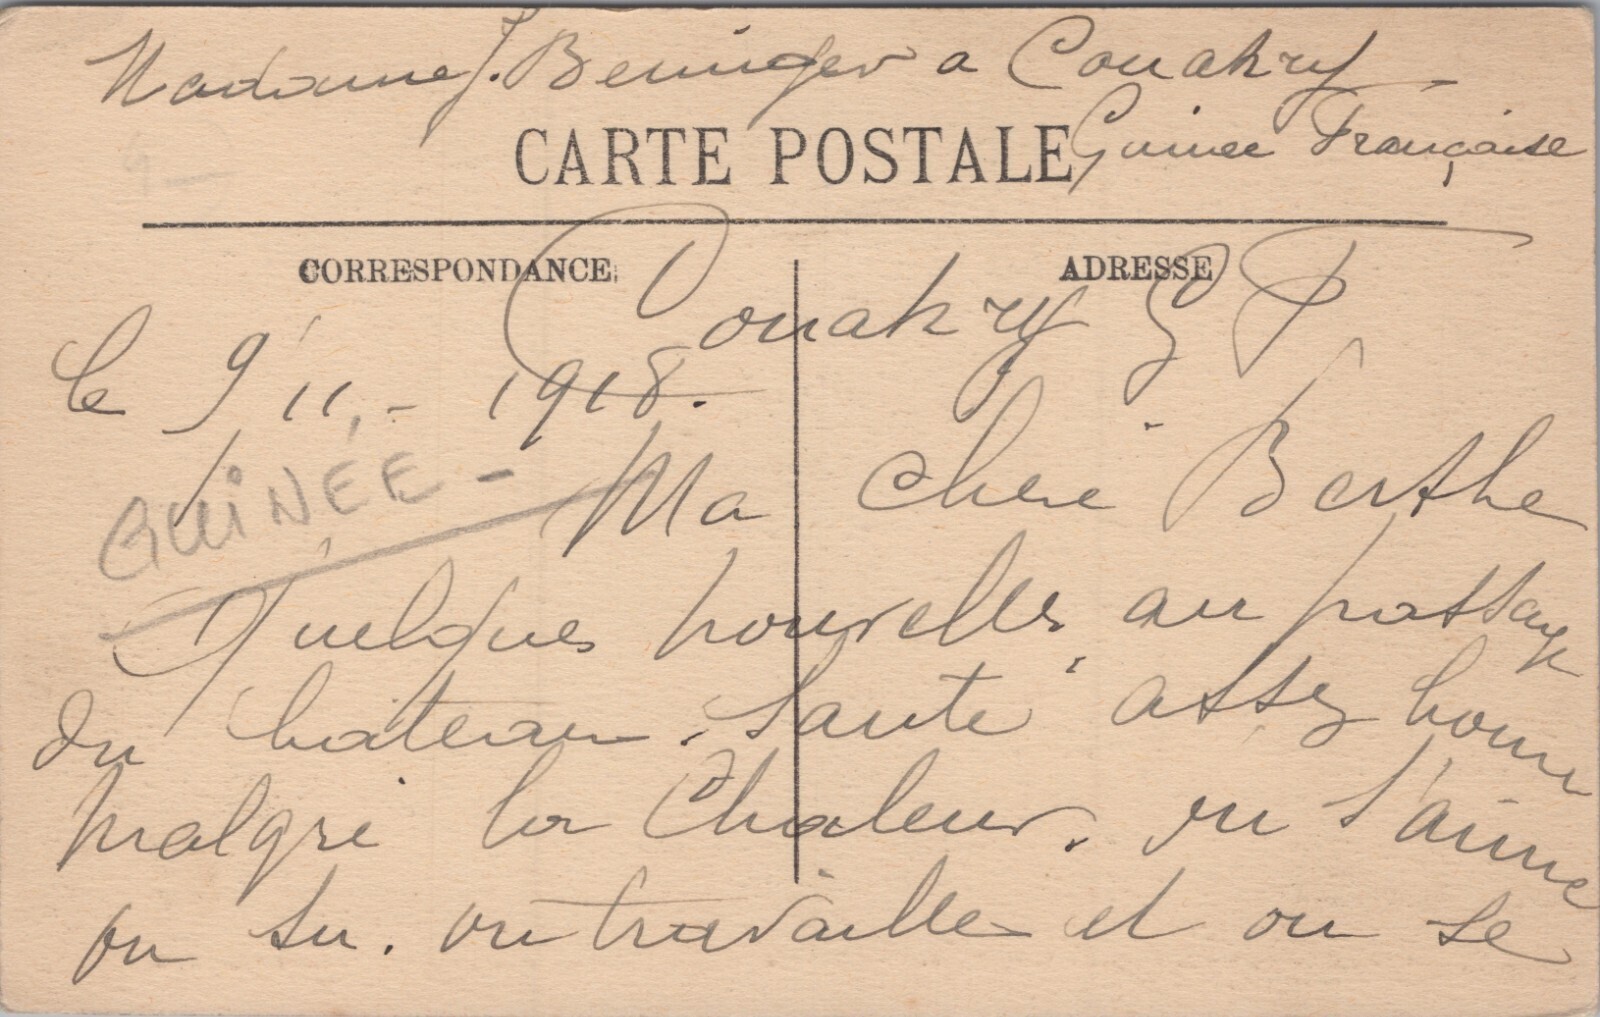 Madame J. Beninger a Conakry
Guinee Française
CARTE POSTALE
CORRESPONDANCE
ADRESSE
Conakry G F
le 9 11 - 1918.
GUINÉE -
Ma chere Berthe
Quelques nouvelles au passage
du bateau. Santé assez bonne
malgré la Chaleur. on s'aime
on travaille et on se